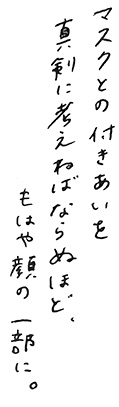 マスクとの付きあいを
真剣に考えねばならぬほど、
もはや顔の一部に。